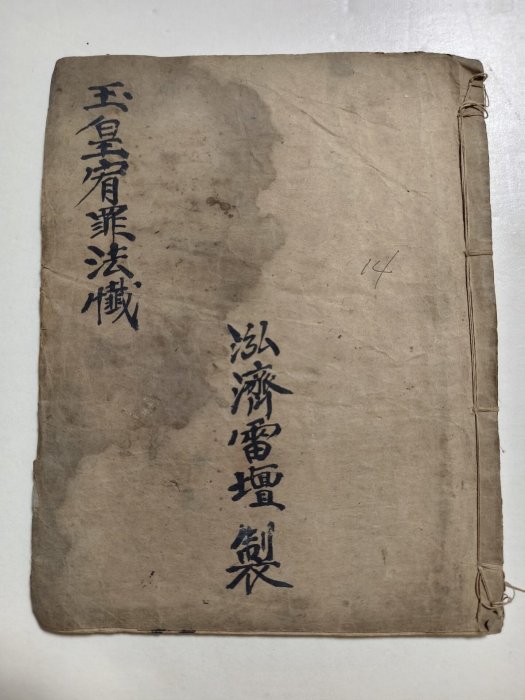 玉皇宥罪法懺
泓濟雷壇 製
14